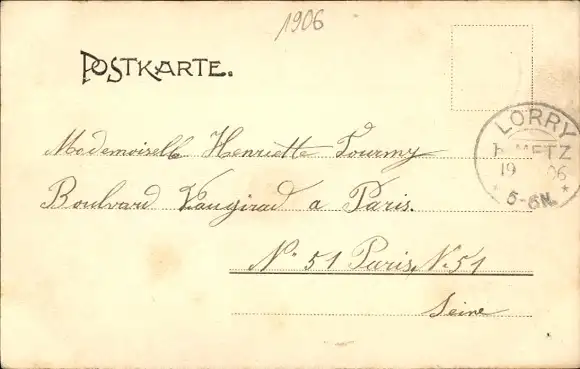 1906
POSTKARTE.
LORRY
b. METZ
19 06
5-6N.
Mademoiselle Henriette Tourmy
Boulvard Vaugirad a Paris.
No 51 Paris, N. 51
Seine